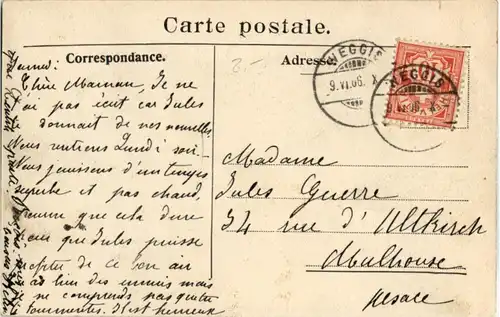 Carte postale.
Correspondance.
Adresse.
WEGGIS
9.VI.06. X
WEGGIS
9.VI.06. X
2.-
Samedi
Chère Maman, Je ne
ai pas écrit car Jules
donnait de nos nouvelles
Nous rentrons Lundi soir.
Nous jouissons d'un temps
superbe et pas chaud,
que cela dure
que Jules puisse
de ce bon air
a bien des ennuis mais
ne comprends pas qu'on te
tourmentes. Il est heureux
Madame
Jules Guerre
34 rue d'Altkirch
Mulhouse
Alsace